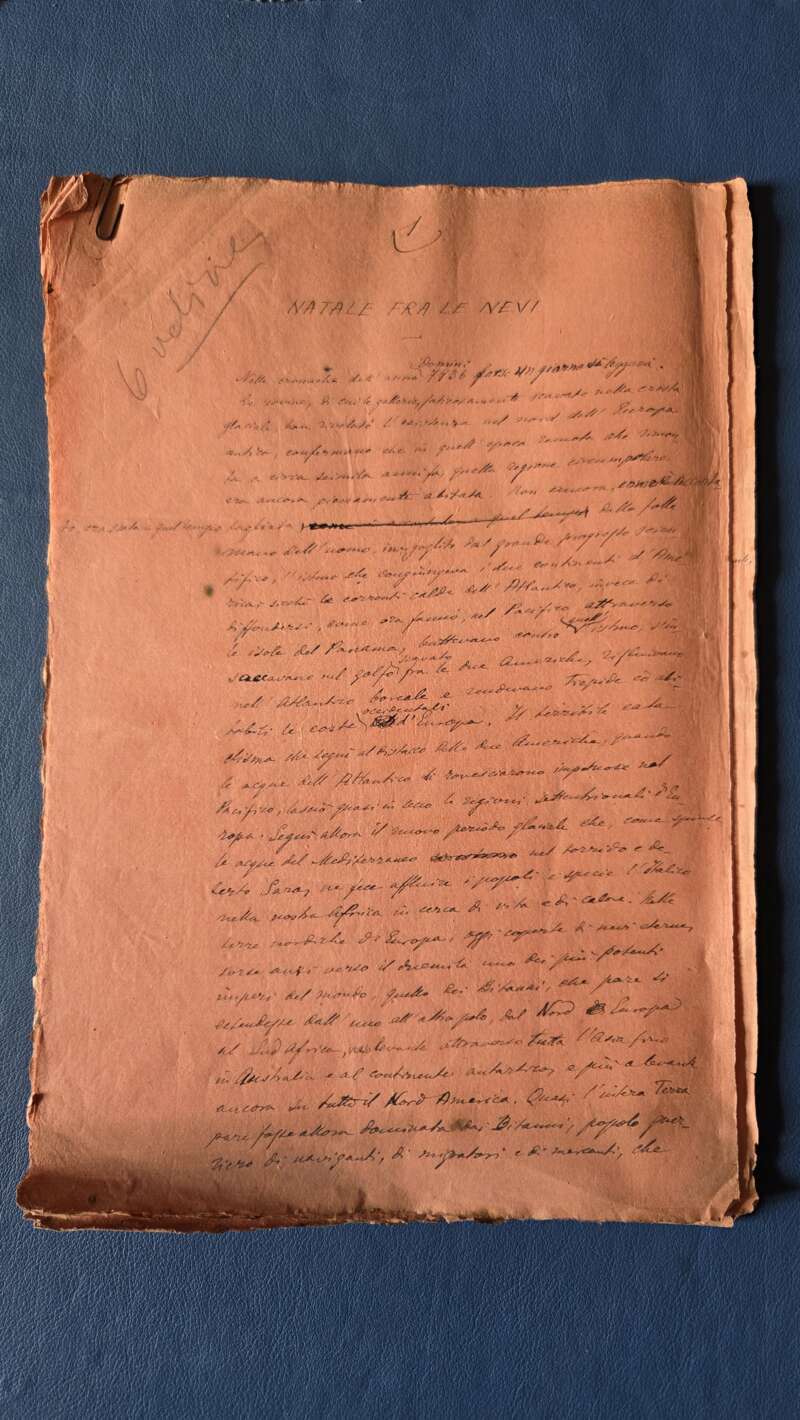 1
6 
NATALE FRA LE NEVI
Nelle cronache dell'anno Domini 7936 forse un giorno si leggerà.
Le rovine, di cui le gallerie, faticosamente scavate nella crosta
glaciale, han rivelato l'esistenza nel nord dell'Europa
antica, confermano che in quell'epoca remota che rimon
ta a circa seimila anni fa, quella regione circumpolare
era ancora pienamente abitata. Non ancora,
era stata a quel tempo tagliata dalla folle
mano dell'uomo, inorgoglito dal grande progresso scien
tifico, l'istmo che congiungeva i due continenti d'Ame
rica; sicchè le correnti calde dell'Atlantico, invece di
diffondersi, come ora fanno, nel Pacifico attraverso
le isole del Panama, battevano contro quell'istmo, s'in
saccavano nel golfo fra le due Americhe, rifluivano
nell'Atlantico boreale e rendevano tiepide ed abi-
tabili le coste occidentali d'Europa. Il terribile cata
clisma che seguì al distacco delle due Americhe, quando
le acque dell'Atlantico si rovesciarono impetuose nel
Pacifico, lasciò quasi in secco le regioni settentrionali d'Eu
ropa. Seguì allora il nuovo periodo glaciale che, come spinse
le acque del Mediterraneo nel torrido e de
serto Sara, ne fece affluire i popoli e specie l'Italico
nella nostra Africa in cerca di vita e di calore. Nelle
terre nordiche di Europa, oggi coperte di nevi eterne,
sorse anzi verso il duemila uno dei più potenti
imperi del mondo, quello dei Bitanni, che pare si
estendesse dall'uno all'altro polo, dal Nord Europa
al Sud Africa, a levante attraverso tutta l'Asia fino
in Australia e al continente antartico, e più a levante
ancora in tutto il Nord America. Quasi l'intera Terra
pare fosse allora dominata dai Bitanni, popolo guer-
riero di naviganti, di migratori e di mercanti, che